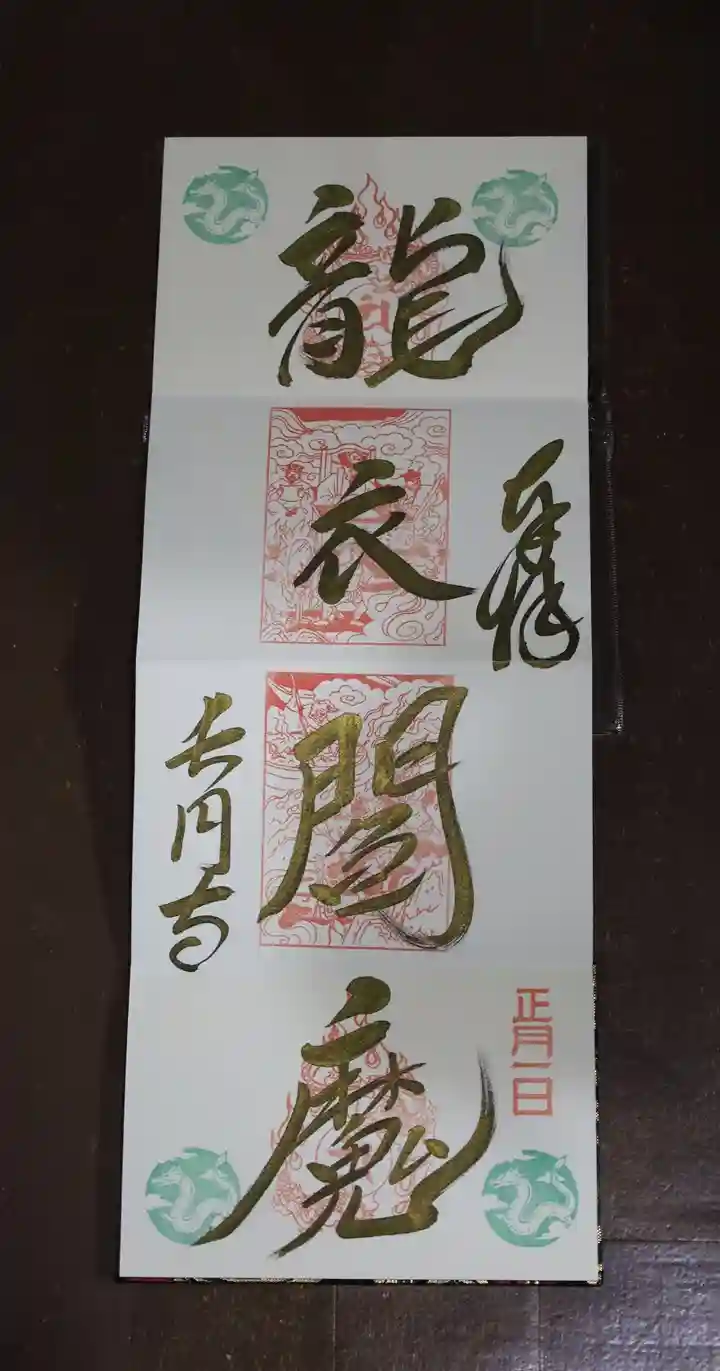 奉拝
正月一日
龍衣閻魔
长円寺